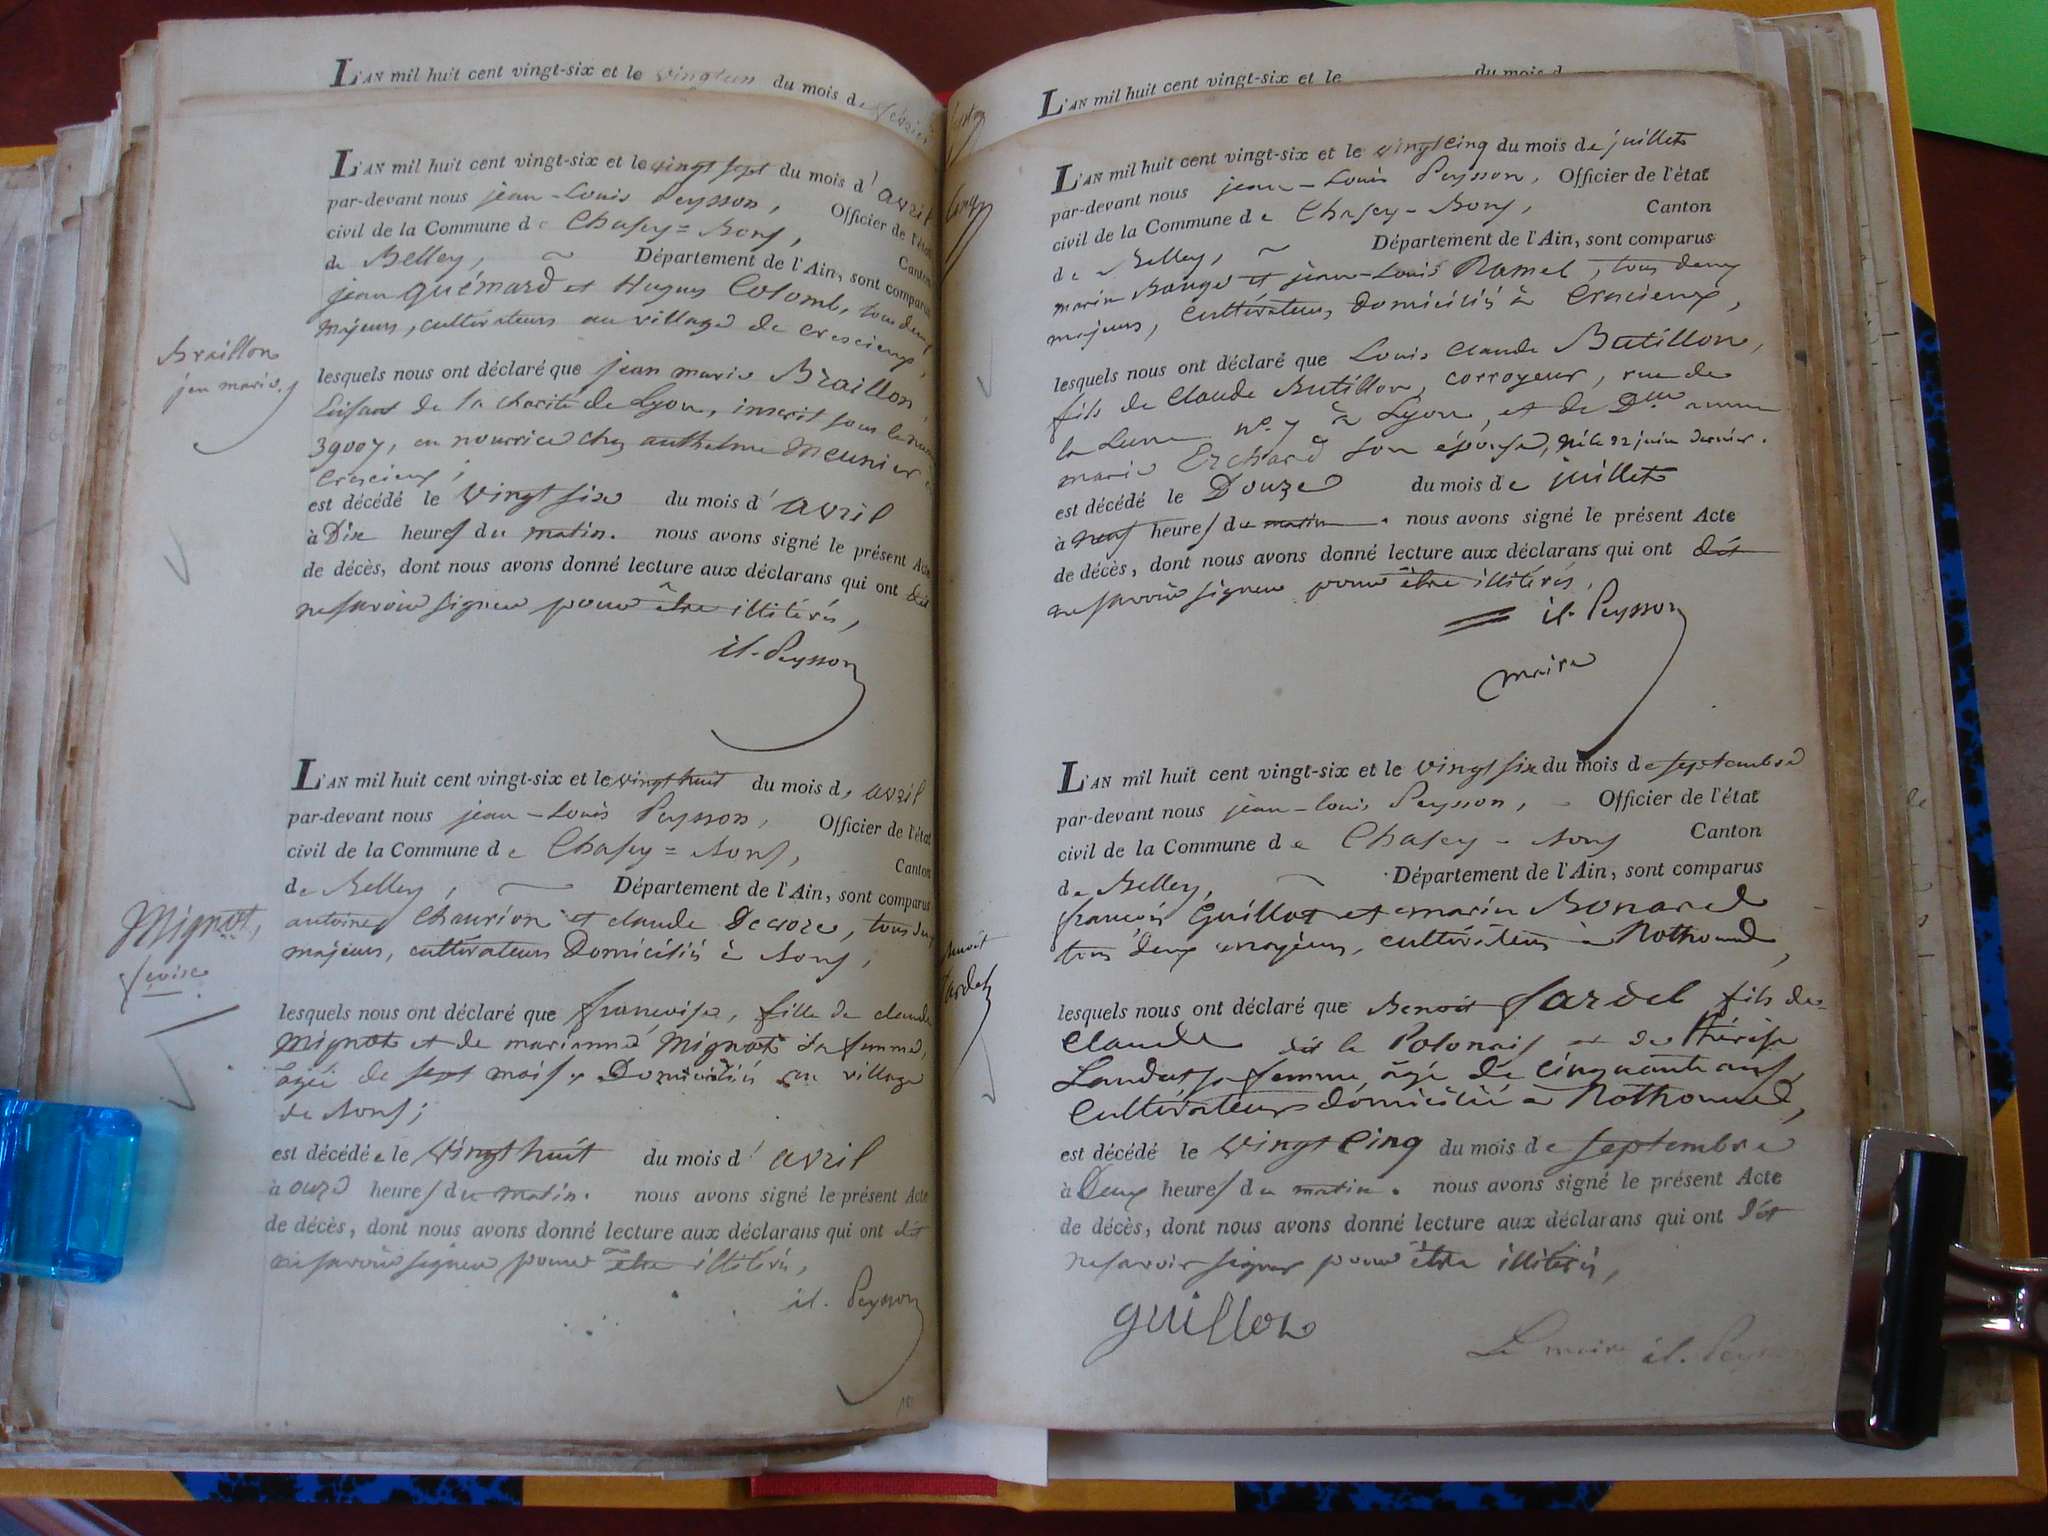 L'AN mil huit cent vingt-six et le vingt un du mois de février
L'AN mil huit cent vingt-six et le vingt sept du mois d'avril
par-devant nous jean-Louis Peysson, Officier de l'état
civil de la Commune de Chasey=Bons, Canton
de Belley, Département de l'Ain, sont comparus
jean Guémard et Hugues Colomb, tous deux
majeurs, cultivateurs au village de Crescieux,
Braillon
jean marie
lesquels nous ont déclaré que jean marie Braillon,
Enfant de la charité de Lyon, inscrit sous le
39007, en nourrice chez anthelme Meunier
Crescieux;
est décédé le vingt six du mois d'avril
à Dix heures du matin. nous avons signé le présent Acte
de décès, dont nous avons donné lecture aux déclarans qui ont dit
ne savoir signer pour être illitérés,
jl. Peysson
L'AN mil huit cent vingt-six et le vingt huit du mois d'avril
par-devant nous jean-Louis Peysson, Officier de l'état
civil de la Commune de Chasey=Bons, Canton
de Belley, Département de l'Ain, sont comparus
antoine Chaurion et claude Decroze, tous deux
majeurs, cultivateurs Domiciliés à Bons,
Mignot,
lesquels nous ont déclaré que françoise, fille de claude
Mignot et de marianne Mignot sa femme,
âgée de sept mois, Domiciliés au village
de Bons;
est décédée le vingt huit du mois d'avril
à onze heures du matin. nous avons signé le présent Acte
de décès, dont nous avons donné lecture aux déclarans qui ont dit
ne savoir signer pour être illitérés,
jl. Peysson
L'AN mil huit cent vingt-six et le du mois d
L'AN mil huit cent vingt-six et le vingt cinq du mois de juillet
par-devant nous jean-Louis Peysson, Officier de l'état
civil de la Commune de Chasey-Bons, Canton
de Belley, Département de l'Ain, sont comparus
marin Bouge et jean-Louis Ramel, tous deux
majeurs, cultivateurs domiciliés à Crescieux,
lesquels nous ont déclaré que Louis Claude Butillon,
fils de Claude Butillon, corroyeur, rue de
la Lune n.o 7 à Lyon, et de D.lle anne
marie Erchard son épouse, né le 22 juin dernier.
est décédé le Douze du mois de juillet
à neuf heures du matin. nous avons signé le présent Acte
de décès, dont nous avons donné lecture aux déclarans qui ont dit
ne savoir signer pour être illitérés,
jl. Peysson
maire
L'AN mil huit cent vingt-six et le vingt six du mois de septembre
par-devant nous jean-louis Peysson, Officier de l'état
civil de la Commune de Chasey-Bons Canton
de Belley, Département de l'Ain, sont comparus
françois Guillot et marin Bonard
tous deux majeurs, cultivateurs à Rothonod,
benoit
Jardel
lesquels nous ont déclaré que Benoit Jardel fils de
Claude dit le Polonais et de thérèse
sa femme, âgé de cinquante ans,
Cultivateur domicilié à Rothonod,
est décédé le vingt cinq du mois de septembre
à Deux heures du matin. nous avons signé le présent Acte
de décès, dont nous avons donné lecture aux déclarans qui ont dit
ne savoir signer pour être illitérés,
guillot
Le maire jl. Peysson